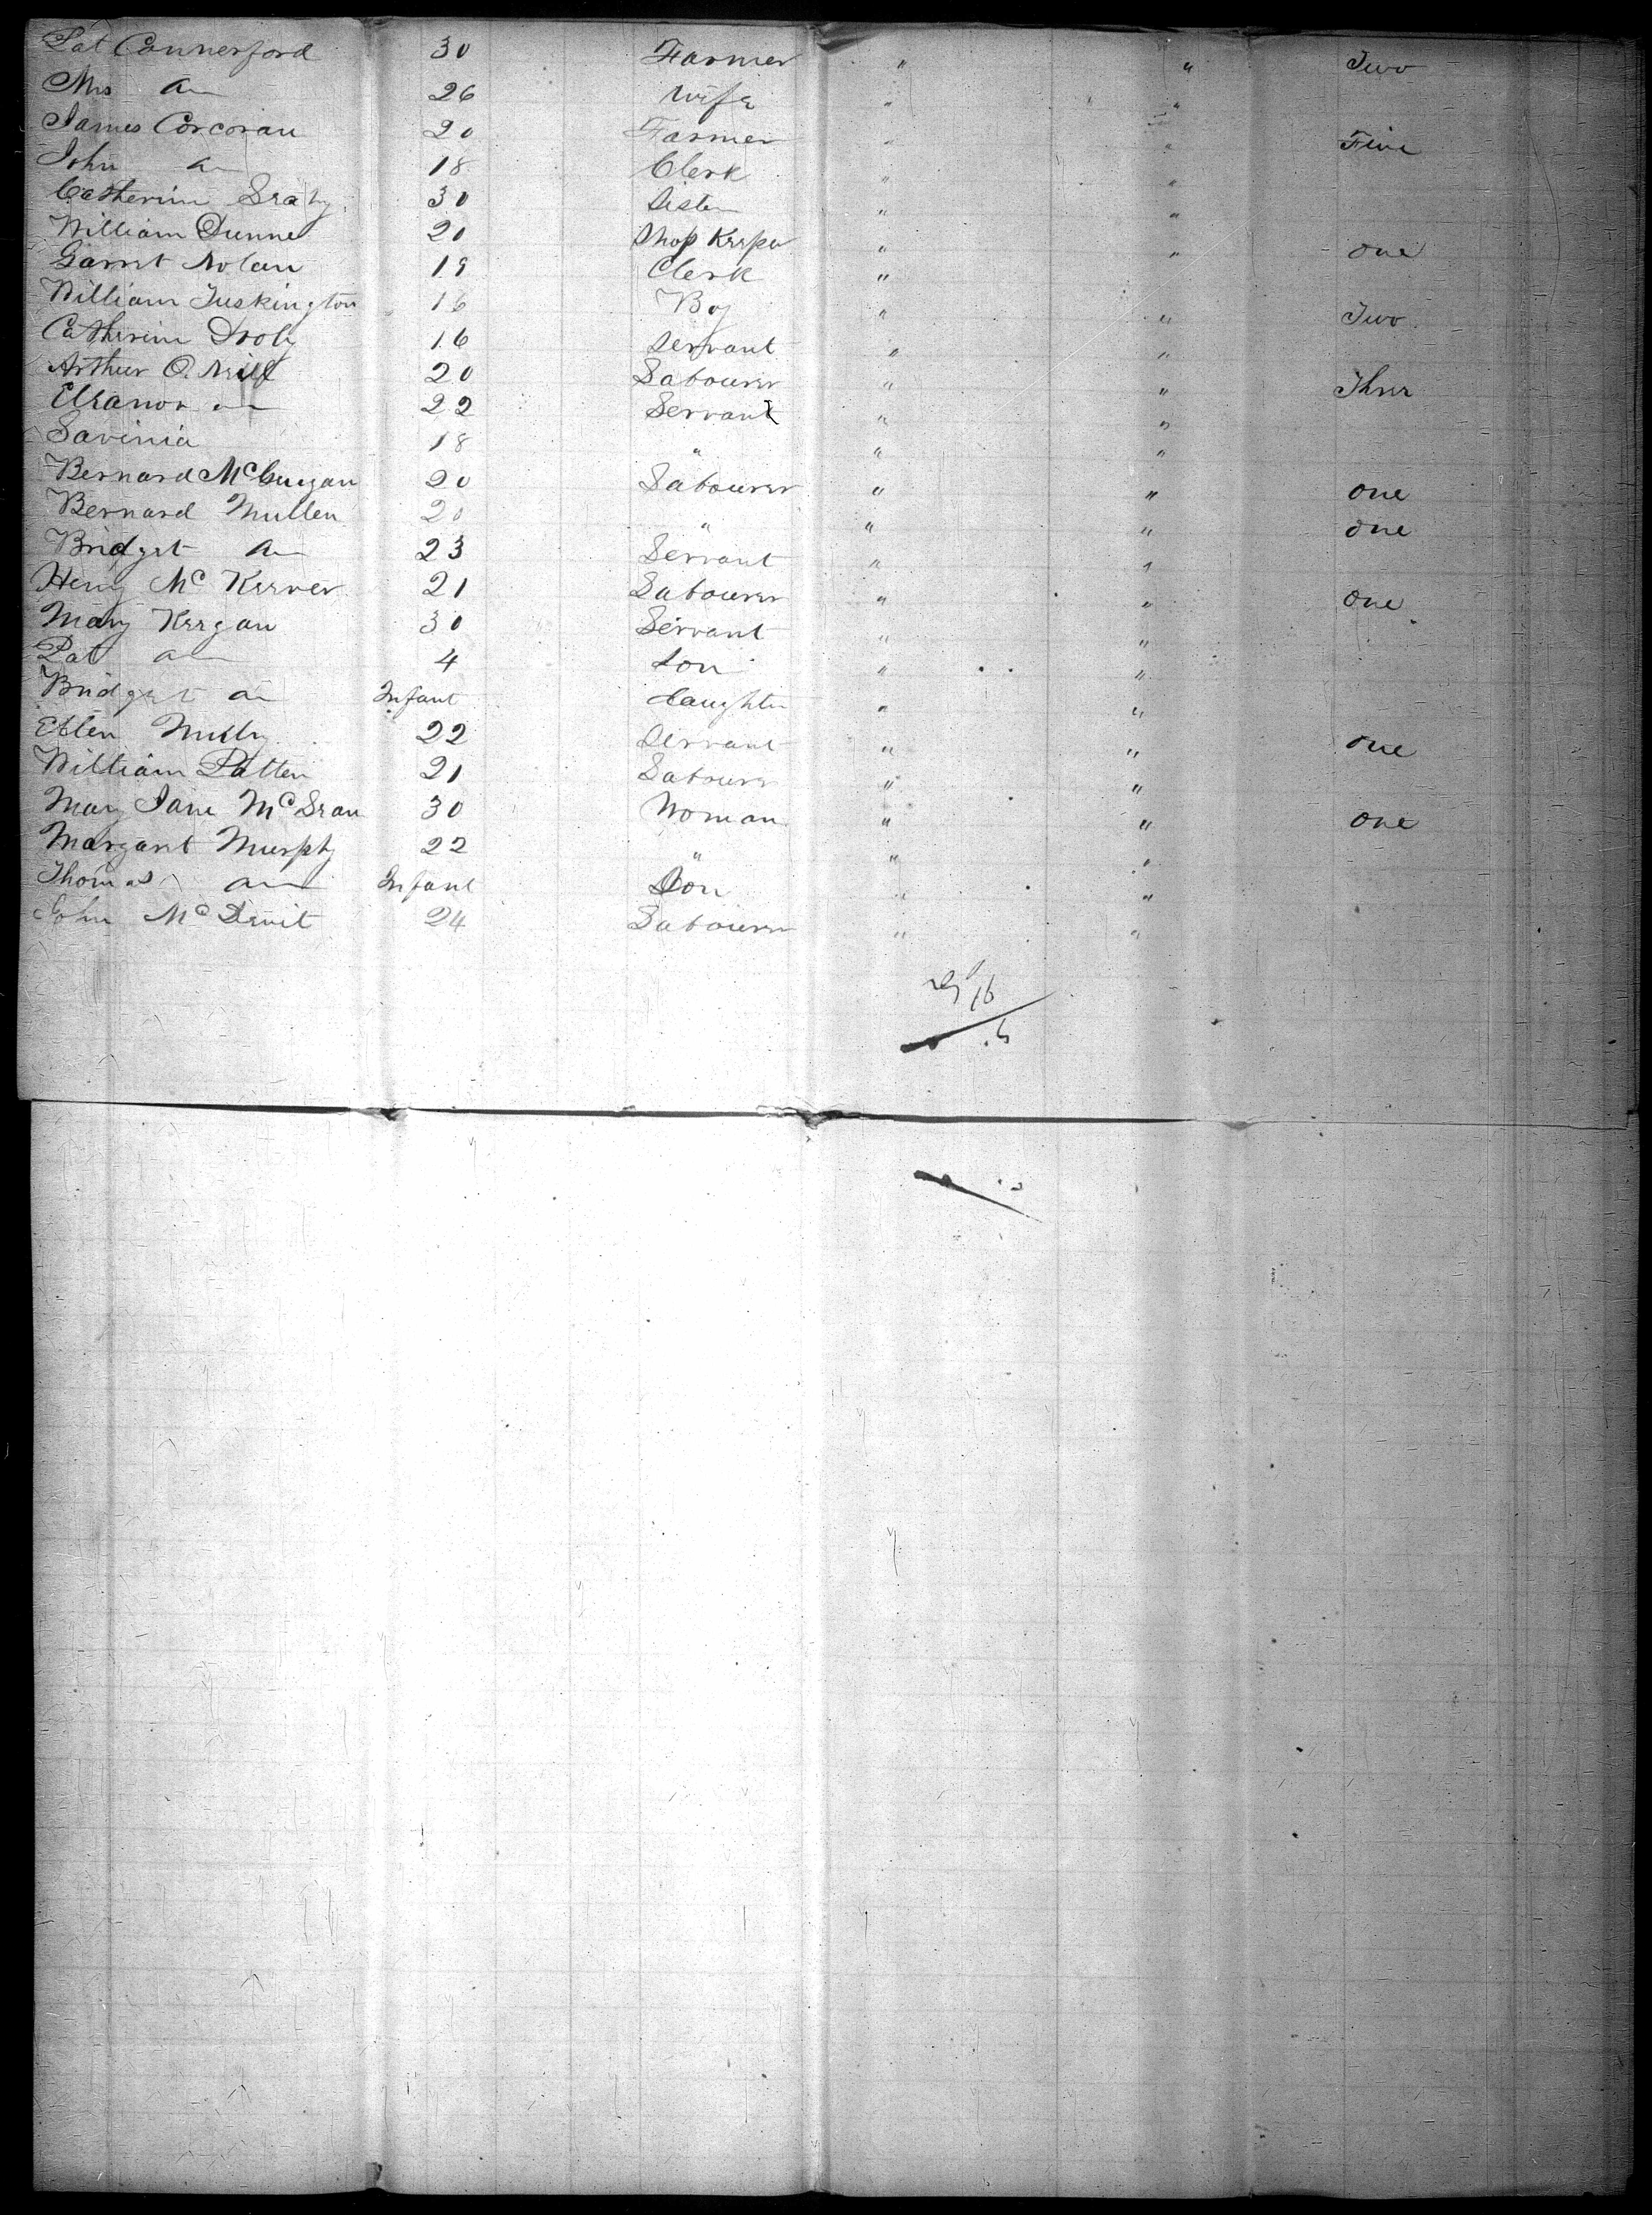 Pat Connerford 30 Farmer " " Two
Mrs do 26 Wife " "
James Corcoran 20 Farmer " " Five
John do 18 Clerk " "
Catherine Leahy 30 Sister " "
William Dunne 20 Shop Keeper " " one
Garret Nolan 19 Clerk "
William Tuskington 16 Boy " " Two
Catherine Dooly 16 Servant " "
Arthur O. Neill 20 Labourer " " Three
Eleanor do 22 Servant " "
Lavinia 18 " " "
Bernard McGuigan 20 Labourer " " one
Bernard Mullen 20 " " " one
Bridget do 23 Servant " "
Henry Mc Keever 21 Labourer " " one
Mary Keegan 30 Servant " "
Pat do 4 Son " "
Bridget do Infant daughter " "
Ellen 22 Servant " " one
William Patten 21 Labourer " "
Mary Jane McLean 30 Woman " " one
Margaret Murphy 22 " " "
Thomas do Infant Son " "
John McDevit 24 Labourer " "